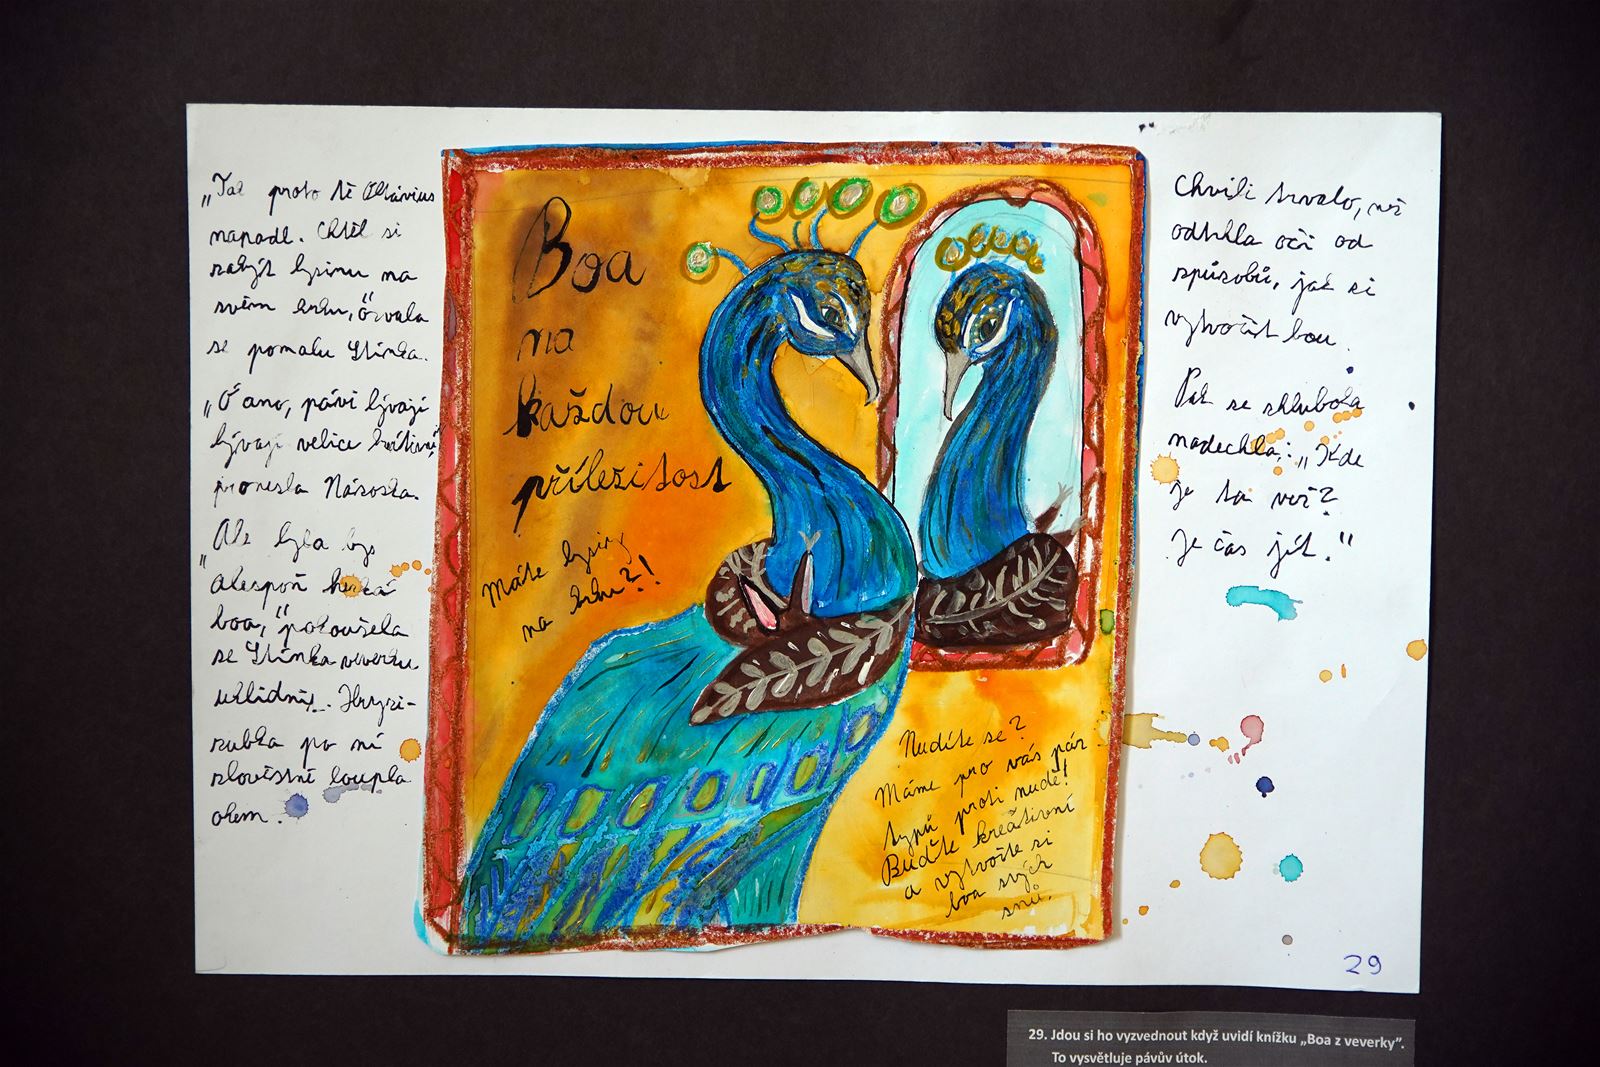 „Tak proto tě Oktávius
napadl. Chtěl si
zakrýt lysinu na
svém krku," ozvala
se pomalu Stínka.
„Ó ano, pávi bývají
bývají velice
pronesla
„Ale byla bys
alespoň hezká
boa," pokoušela
se Stínka veverku
uklidnit. Hryzi-
zubka po ní
zlověstně loupla
okem.
Boa
na
každou
příležitost
Máte lysiny
na krku?!
Nudíte se?
Máme pro vás pár
typů proti nudě!
Buďte kreativní
a vytvořte si
boa svých
snů.
Chvíli trvalo, než
odtrhla oči od
způsobů, jak si
vytvořit bou.
Pak se zhluboka
nadechla: „Kde
je ta věž?
Je čas jít."
29
29. Jdou si ho vyzvednout když uvidí knížku „Boa z veverky".
To vysvětluje pávův útok.